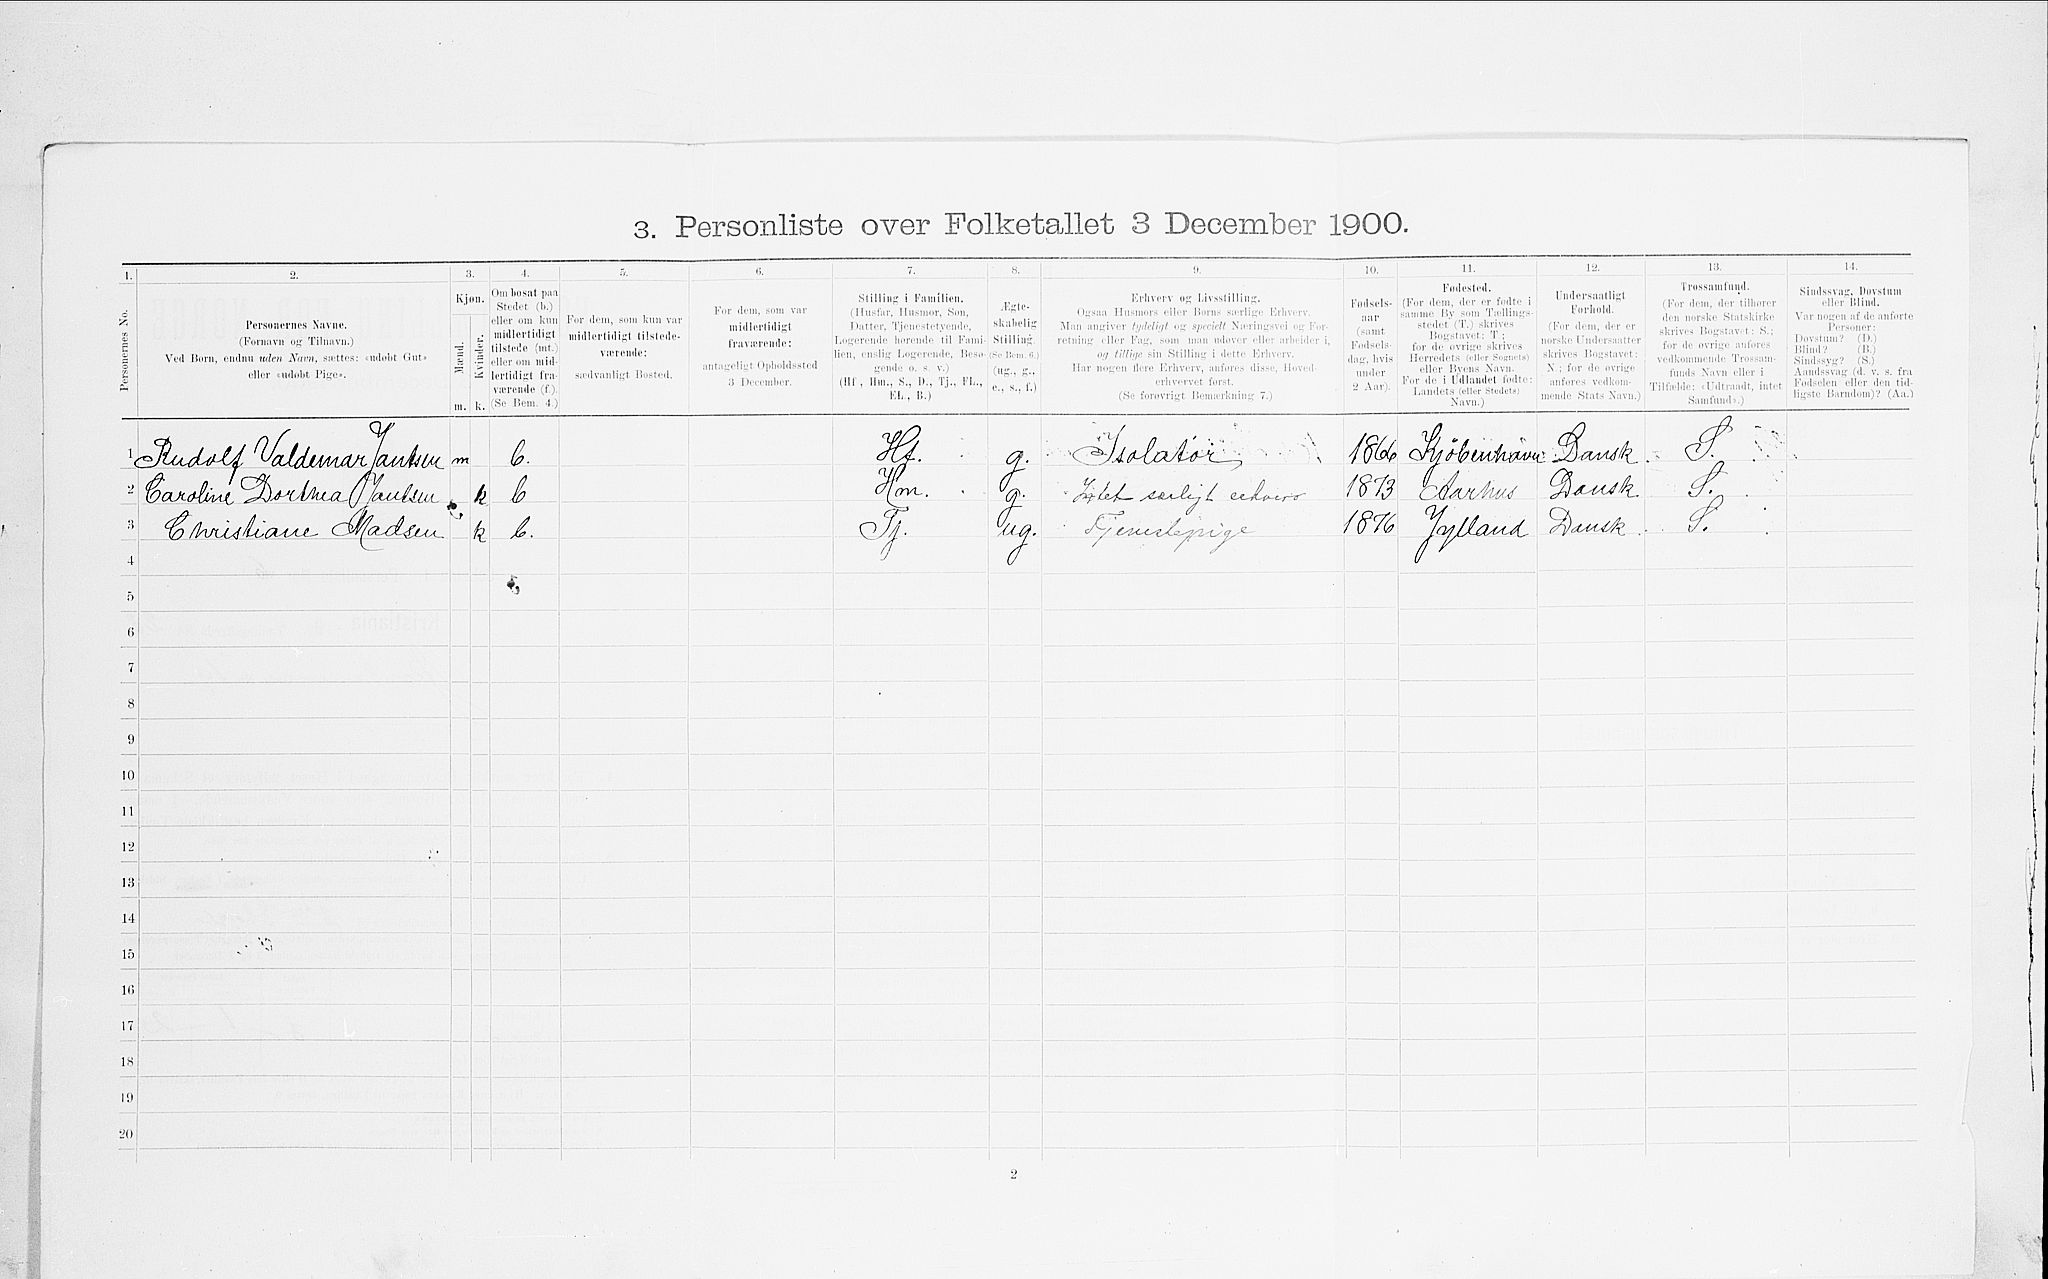 3. Personliste over Folketallet 3 December 1900.
1. 2. 3. 4. 5. 6. 7. 8. 9. 10. 11. 12. 13. 14.
Personernes No.
Personernes Navne.
(Fornavn og Tilnavn.)
Ved Børn, endnu uden Navn, sættes: «udøbt Gut»
eller «udøbt Pige».
Kjøn.
Mænd.
Kvinder.
m. k.
Om bosat paa
Stedet (b.)
eller om kun
midlertidigt
tilstede (mt.)
eller om mid-
lertidigt fra-
værende (f.).
(Se Bem. 4.)
For dem, som kun var
midlertidigt tilstede-
værende:
sædvanligt Bosted.
For dem, som var
midlertidigt
fraværende:
antageligt Opholdssted
3 December.
Stilling i Familien.
(Husfar, Husmor, Søn,
Datter, Tjenestetyende,
Logerende hørende til Fami-
lien, enslig Logerende, Besø-
gende o. s. v.)
(Hf., Hm., S., D., Tj., FL.,
EL., B.)
Ægte-
skabelig
Stilling.
(Se Bem. 6.)
(ug., g.,
e., s., f.)
Erhverv og Livsstilling.
Ogsaa Husmors eller Børns særlige Erhverv.
Man angiver tydeligt og specielt Næringsvei og For-
retning eller Fag, som man udøver eller arbeider i,
og tillige sin Stilling i dette Erhverv.
Har nogen flere Erhverv, anføres disse, Hoved-
erhvervet først.
(Se forøvrigt Bemærkning 7.)
Fødsels-
aar
(samt
Fødsels-
dag, hvis
under
2 Aar).
Fødested.
(For dem, der er fødte i
samme By som Tællings-
stedet (T.) skrives
Bogstavet: T;
for de øvrige skrives
Herredets (eller Sognets)
eller Byens Navn.
For de i Udlandet fødte:
Landets (eller Stedets)
Navn.)
Undersaatligt
Forhold.
(For dem, der er
norske Undersaatter
skrives Bogstavet:
N.; for de øvrige
anføres vedkom-
mende Stats Navn.)
Trossamfund.
(For dem, der tilhører
den norske Statskirke
skrives Bogstavet: S.;
for de øvrige anføres
vedkommende Trossam-
funds Navn eller i
Tilfælde: «Udtraadt, intet
Samfund».)
Sindssvag, Døvstum
eller Blind.
Var nogen af de anførte
Personer:
Døvstum? (D.)
Blind? (B.)
Sindssyg? (S.)
Aandssvag (d. v. s. fra
Fødselen eller den tid-
ligste Barndom)? (Aa.)
1 Rudolf Valdemar Jantsen m b. Hf. g. Isolatør 1866 Kjøbenhavn Dansk. S.
2 Caroline Dorthea Jantsen k b Hm. g. Intet særligt erhverv 1873 Aarhus Dansk. S.
3 Christiane Madsen k b. Tj. ug. Tjenestepige 1876 Jylland Dansk. S.
4
5
6
7
8
9
10
11
12
13
14
15
16
17
18
19
20
2